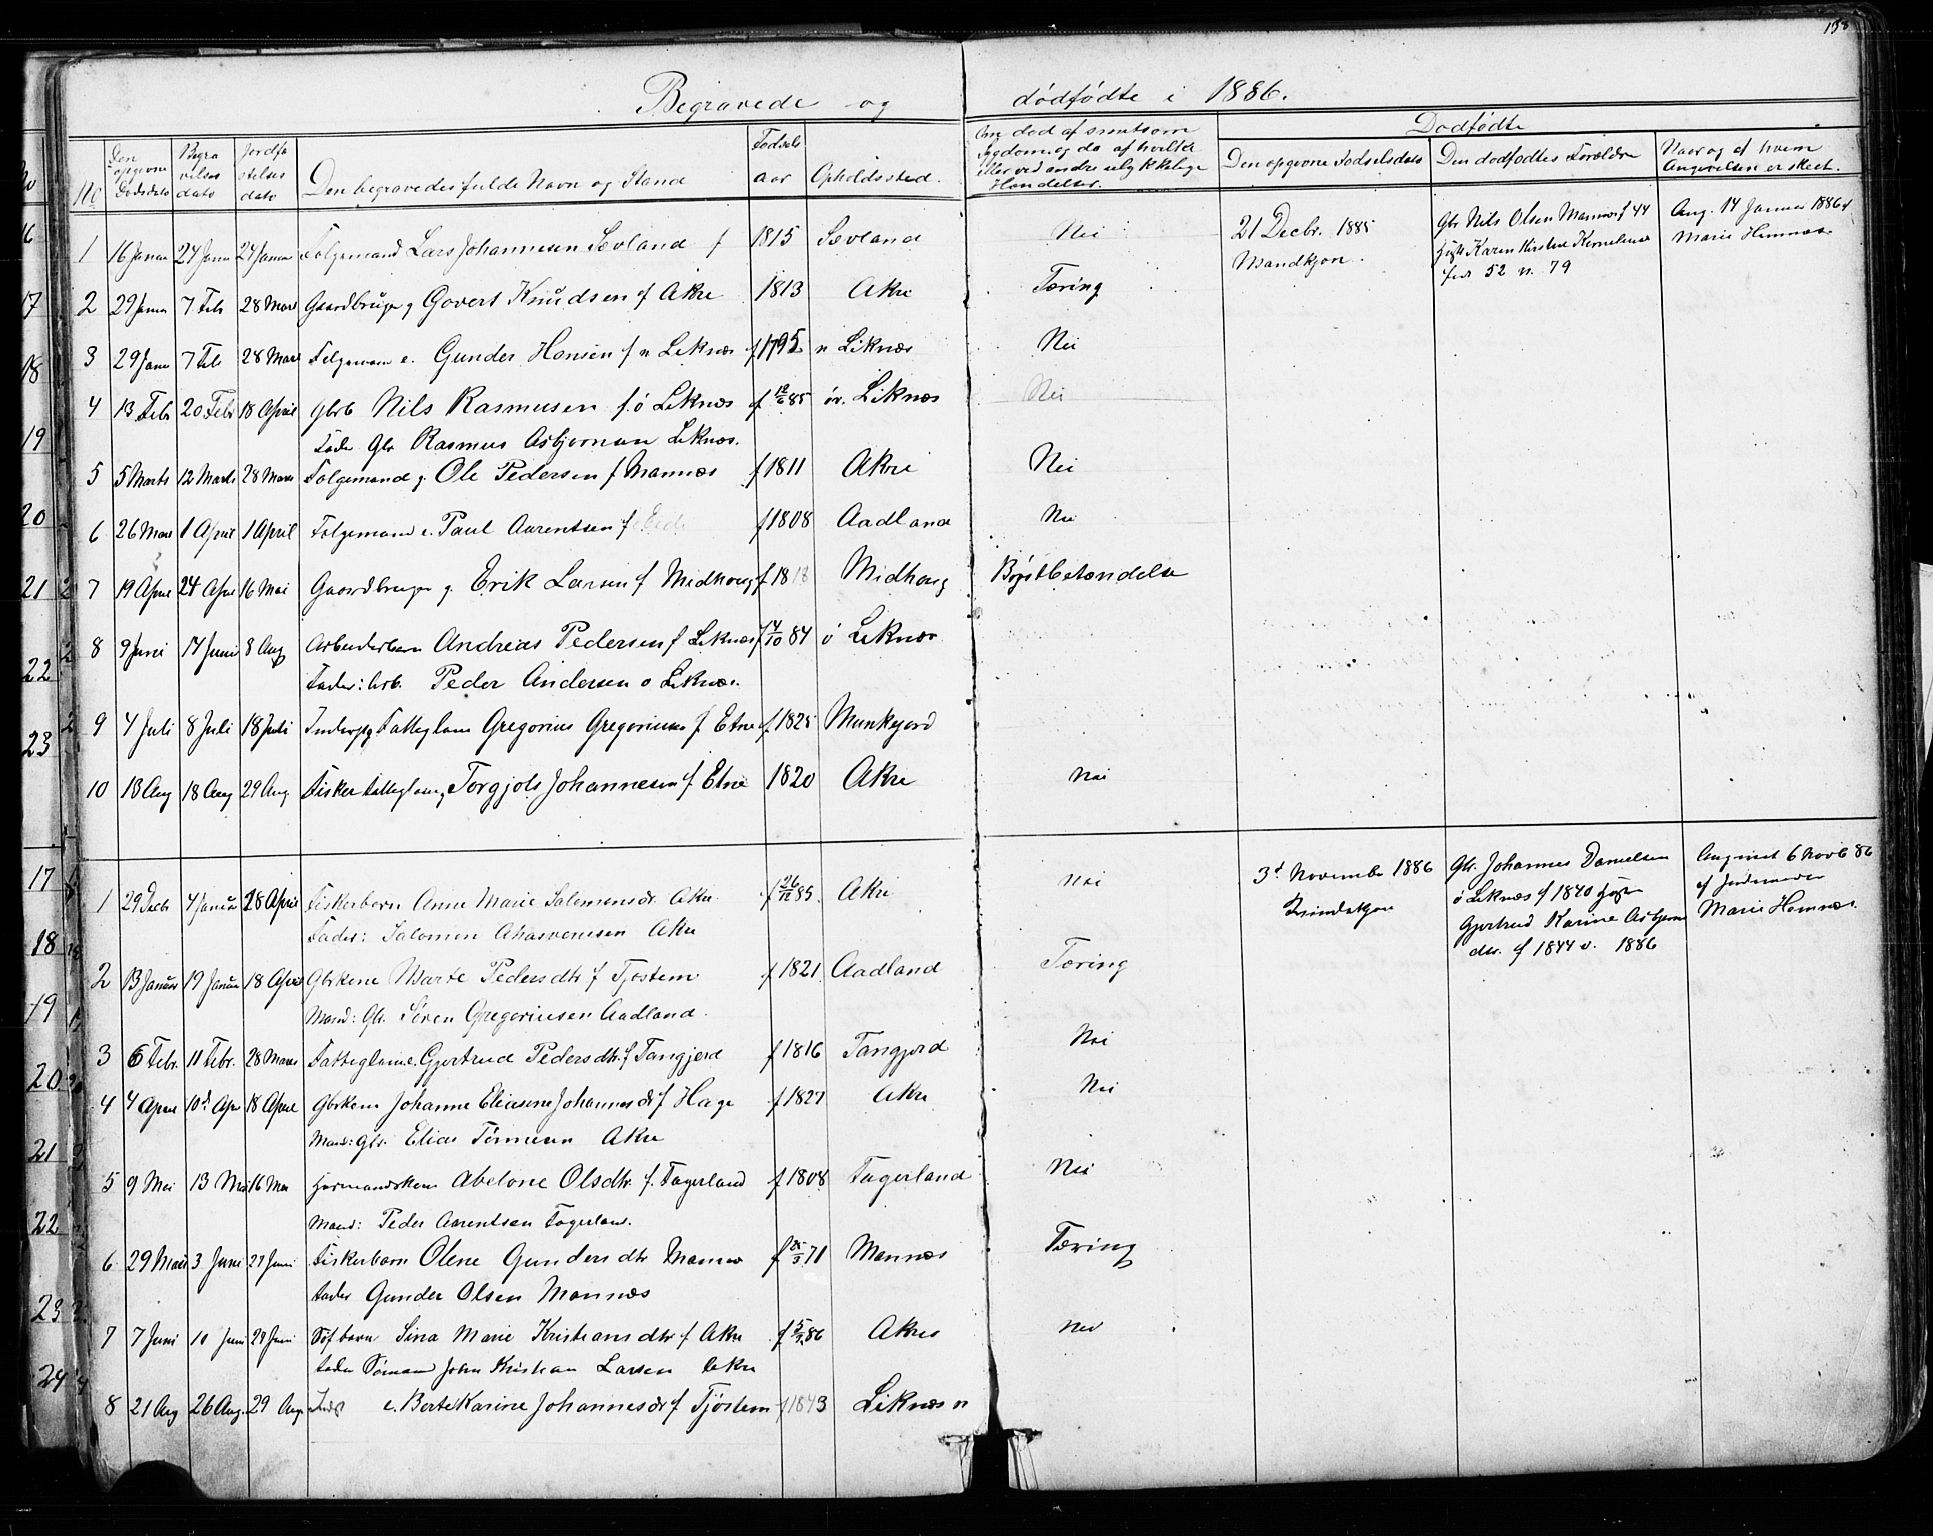 138
Begravede og dødfødte i 1886.
No
Den opgivne Dødsdato
Begravelses dato
Jordfæstelses dato
Den begravedes fulde Navn og Stand
Fødsels aar
Opholdssted.
Om død af smitsom Sygdom og da af hvilken eller ved andre ulykkelige Hændelser.
Dødfødte
Den opgivne Fødselsdato
Den dødfødtes Forældre
Naar og af hvem Angivelsen er skeet.
1 16 Januar 24 Janu 24 Januar Følgemand Lars Johannesen Sævland f 1815 Sævland Nei
21 Decbr. 1885 Mandkjøn.
Gbr Nils Olsen Mannes f 44
Karen Kirstine Kornelius
født 52 n. 79
Ang. 14 Januar 1886 af
Marie Hemnæs
2 29 Janu 7 Feb 28 Mars Gaardbruger g Govert Knudsen f Akre 1813 Akre Tæring
3 29 Janu 7 Feb 28 Mars Følgemand e. Gunder Hansen f n Liknæs f 1795 n Liknæs Nei
4 13 Feb 20 Febr 18 April Gbrb Nils Rasmusen f. ø Liknæs f 12/6 85 øv. Liknæs Nei
Fader Gbr Rasmus Asbjørnsen Liknæs.
5 5 Marts 12 Marts 28 Mars Følgemand g. Ole Pedersen f Mannæs f 1811 Akre Nei
6 26 Mars 1 April 1 April Følgemand e. Paul Aarentsen f Eide f 1808 Aadland Nei
7 19 April 24 April 16 Mai Gaardbruger g. Erik Larsen f Midhoug f 1818 Midhaug Brystbetændelse
8 9 Juni 17 Juni 8 Aug Arbeiderbarn Andreas Pedersen f Liknæs f 14/10 84 ø Liknæs
Fader: Arb. Peder Andersen ø Liknæs.
9 4 Juli 8 Juli 18 Juli Inderst g Fattiglem Gregorius Gregoriusen f Etne f. 1825 Munkejord
10 13 Aug 18 Aug 29 Aug Fisker fattiglem g Torgjols Johannesen f Etne 1820 Akre Nei
1 29 Decb 4 Januar 28 April Fiskerbarn Anne Marie Salomonsdr. Akre f 26/12 85. Akre Nei
Fader: Salomon Ahasverusen Akre
3d November 1886
Kvindekjøn
Gbr. Johannes Danielsen
ø Liknæs f 1840 Hust
Gjertrud Karine Asbjørns
dtr. f 1844 v. 1886
Angivet 6 Novb 86
af Jordemoder
Marie Hemnæs.
2 13 Januar 19 Januar 18 April Gbrkone Marte Pedersdtr f Tjøstem f 1821 Aadland Tæring
Mand: Gbr. Søren Gregoriusen Aadland.
3 6 Febr. 11 Febr. 28 Mars Fattiglem e. Gjertrud Pedersdtr. f Tangjerd f 1816 Tangjerd Nei
4 4 April 10d Apr 18 April Gbrkone Johanne Eliasine Johannesdr f Hage f 1827 Akre Nei
Mand: Gbr. Elias Tørresen Akre
5 9 Mai 13 Mai 16 Mai Husmandskone Abelone Olsdtr f. Fagerland f 1808 Fagerland Nei
Mand: Peder Aarentsen Fagerland.
6 29 Mai 3 Juni 27 Juni Fiskerbarn Olene Gundersdtr Mannes f 25/3 71 Mannæs Tæring
Fader Gunder Olsen Mannæs
7 7 Juni 10 Juni 29 Juni Søf barn Sina Marie Kristiansdtr f Akre f 5/5 86 Akre Nei
Fader Sømand John Kristian Larsen Akre
8 21 Aug 26 Aug. 29 Aug Inds e. Berte Karine Johannesdr f Tjøstem f 1843 Liknæs n
16
17
18
19
20
21
22
23
17
18
19
20
21
22
23
24